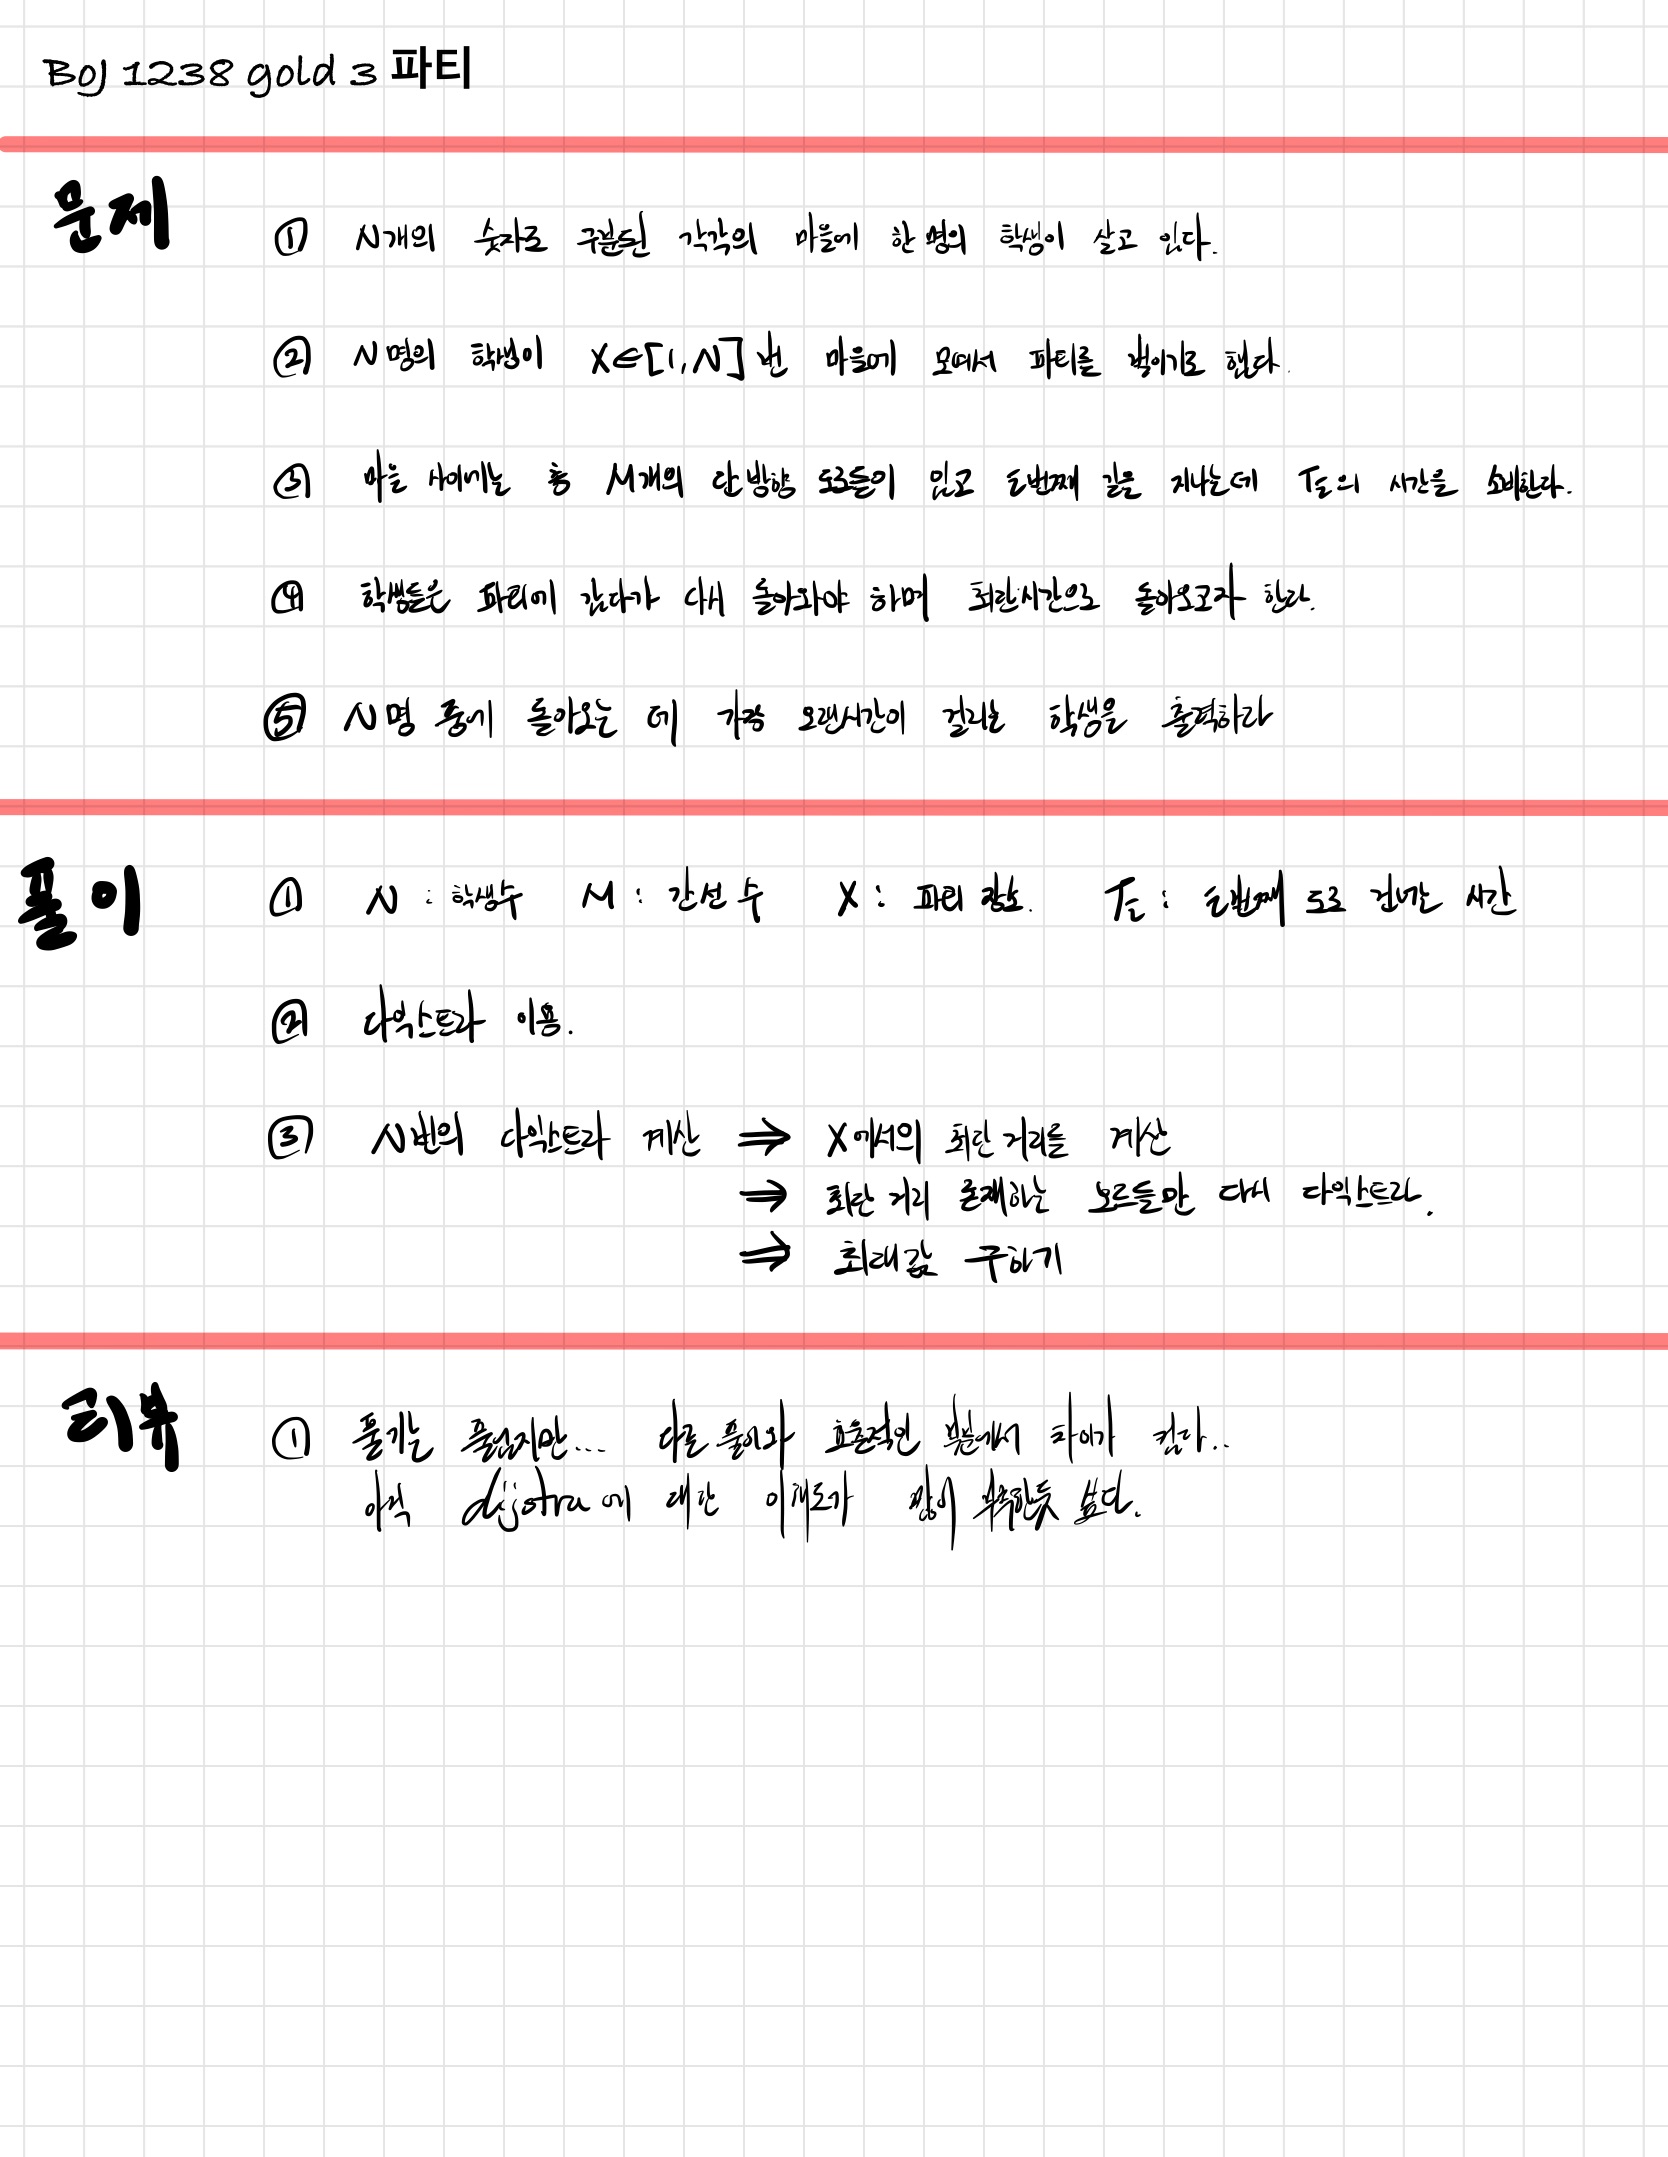 BOJ 1238 gold 3 파티
문제
① N개의 숫자로 구분된 각각의 마을에 한 명의 학생이 살고 있다.
② N명의 학생이 X∈[1,N]번 마을에 모여서 파티를 벌이기로 했다.
③ 마을 사이에는 총 M개의 단방향 도로들이 있고 i번째 길을 지나는데 Ti의 시간을 소비한다.
④ 학생들은 파티에 갔다가 다시 돌아와야 하며 최단시간으로 돌아오고자 한다.
⑤ N명 중에 돌아오는 데 가장 오랜시간이 걸리는 학생을 출력하라
풀이
① N : 학생수 M : 간선 수 X : 파티 장소. Ti : i번째 도로 건너는 시간
② 다익스트라 이용.
③ N번의 다익스트라 계산 ⇒ X에서의 최단 거리를 계산
⇒ 최단 거리 존재하는 노드들만 다시 다익스트라.
⇒ 최대값 구하기
리뷰
① 풀기는 풀었지만... 다른 풀이와 효율적인 부분에서 차이가 컸다..
아직 dijstra에 대한 이해도가 많이 부족한듯 싶다.